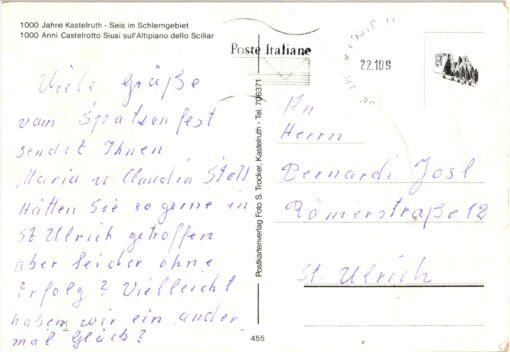 1000 Jahre Kastelruth - Seis im Schlerngebiet
1000 Anni Castelrotto Siusi sull'Altipiano dello Sciliar
Viele Grüße
vom Spatzenfest
sendet Ihnen
Maria u. Claudia Stoll
Hätten Sie so gerne in
St Ulrich getroffen
aber leider ohne
Erfolg? Vielleicht
haben wir ein ander
mal Glück?
Postkartenverlag Foto S. Trocker, Kastelruth - Tel. 706371
455
Poste Italiane
22.10.9
An
Herrn
Bernardi Josl
Römerstraße 12
St. Ulrich